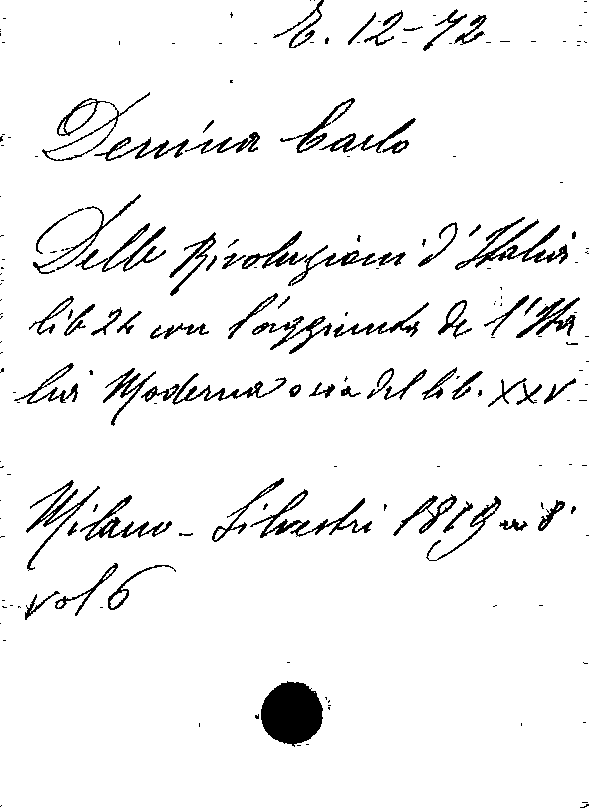 E. 12-72
Denina Carlo
Delle Rivoluzioni d'Italia
lib 24 con l'aggiunta de l'Ita
lia Moderna ossia del lib. XXV
Milano - Silvestri 1819 in 8°
vol 6